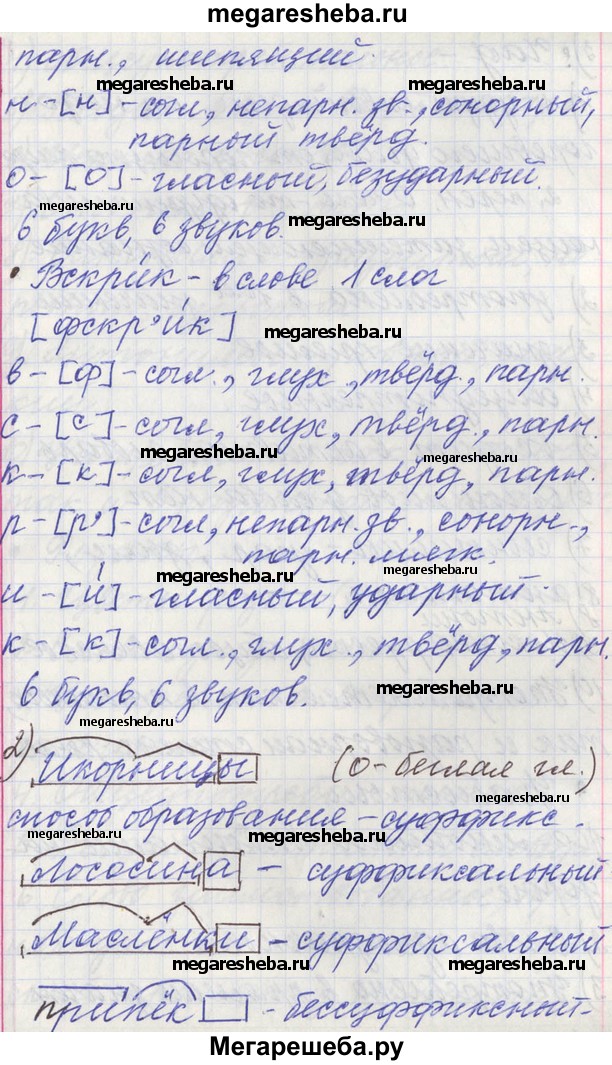 megaresheba.ru
парн., шипящий.
megaresheba.ru megaresheba.ru
н-[н]-согл, непарн. зв., сонорный,
парный твёрд.
megaresheba.ru
о-[о]-гласный, безударный.
megaresheba.ru megaresheba.ru
6 букв, 6 звуков.
Вскри́к - в слове 1 слог
[фскр'и́к] megaresheba.ru
в-[ф]-согл., глух., твёрд., парн.
megaresheba.ru
с-[с]-согл, глух, твёрд., парн.
megaresheba.ru
к-[к]-согл, глух, твёрд, парн.
р-[р']-согл, непарн. зв., сонорн.,
парн. мягк.
megaresheba.ru
и-[и́]-гласный, ударный.
megaresheba.ru
к-[к]-согл., глух., твёрд, парн.
6 букв, 6 звуков. megaresheba.ru
megaresheba.ru
2) Икорницы (о-беглая гл.)
megaresheba.ru
способ образования - суффикс.
megaresheba.ru megaresheba.ru
Лососина - суффиксальный
megaresheba.ru
Маслёнки - суффиксальный
megaresheba.ru megaresheba.ru
припёк - бессуффиксный-
Мегарешеба.ру